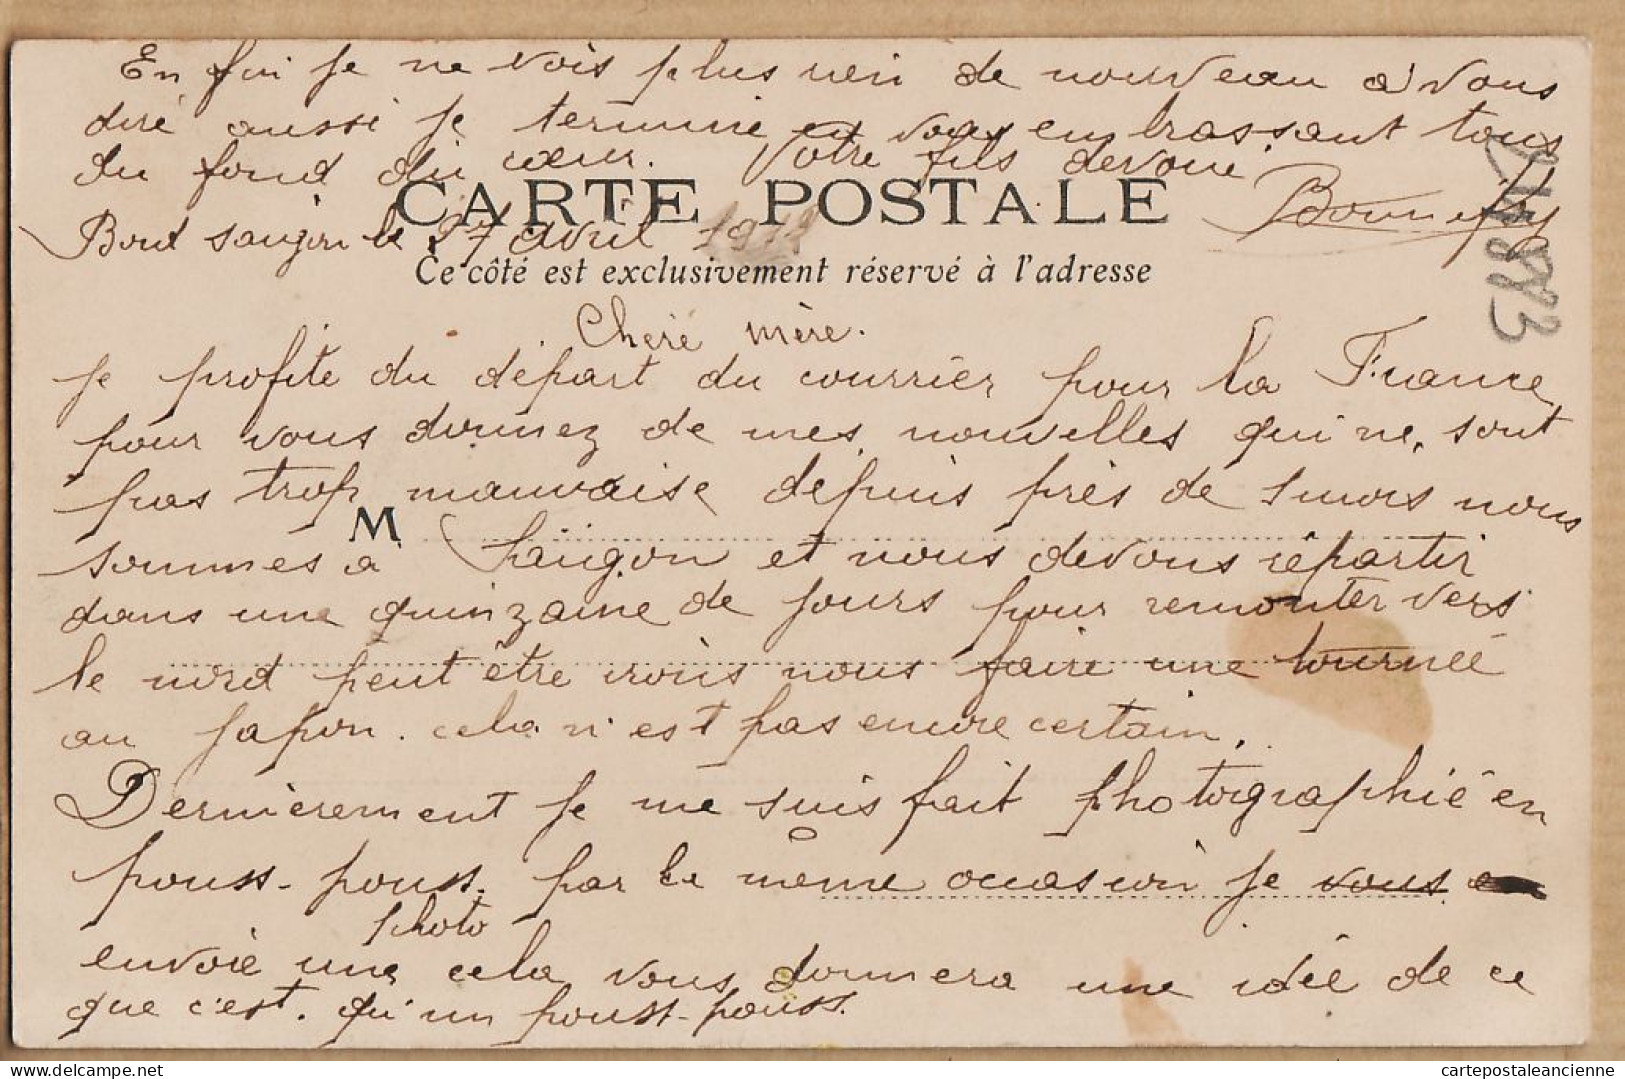 En fin je ne vois plus rien de nouveau a vous
dire aussi je termine en vous embrassant tous
du fond du cœur. Votre fils devoué.
Bonnefoy
CARTE POSTALE
Bord saigon le 27 avril 1912
Ce côté est exclusivement réservé à l'adresse
Cheré mère.
je profite du départ du courrier pour la France
pour vous donnez de mes nouvelles qui ne sont
pas trop mauvaise depuis près de 1 mois nous
M
sommes a Saïgon et nous devons répartir
dans une quinzaine de jours pour remonter vers
le nord peut être irois nous faire une tournée
au japon. cela n'est pas encore certain.
Dernièrement je me suis fait photographié en
pouss-pouss. par la même occasion je vous
photo
envoie une cela vous donnera une idée de ce
que c'est. qu'un pouss-pouss.
cartepostaleancienne
delcampe.net